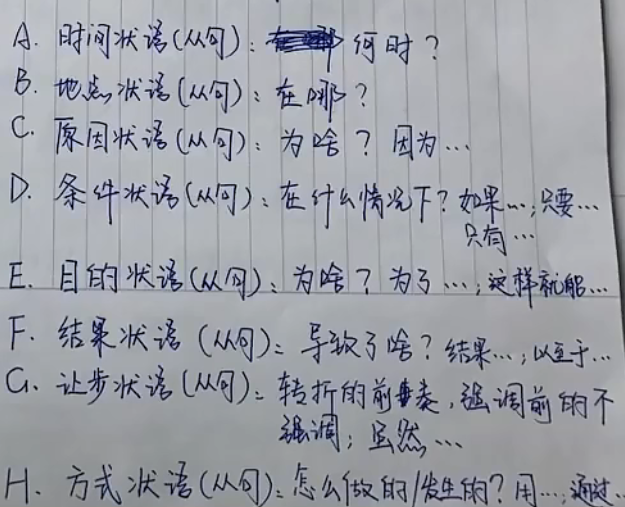 A. 时间状语(从句)：何时？
B. 地点状语(从句)：在哪？
C. 原因状语(从句)：为啥？因为…
D. 条件状语(从句)：在什么情况下？如果…；只要…
只有…
E. 目的状语(从句)：为啥？为了…；这样就能…
F. 结果状语(从句)：导致了啥？结果…；以至于…
G. 让步状语(从句)：转折的前奏，强调前的不
强调；虽然…
H. 方式状语(从句)：怎么做的/发生的？用…；通过…